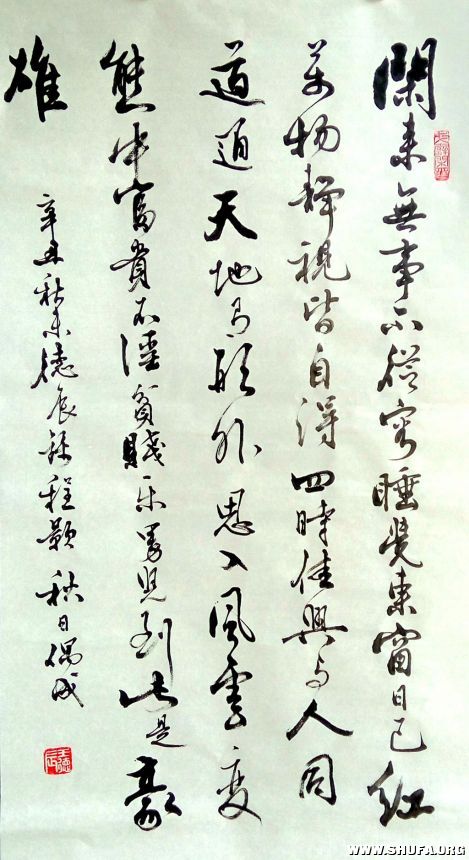 閑来無事不從容睡覺東窗日已红
萬物靜視皆自得四時佳興与人同
道通天地有形外思入風雲变
態中富貴不淫貧賤乐男兒到此是豪
雄
辛丑秋末德辰録程颢秋日偶成
王德辰
WWW.SHUFA.ORG